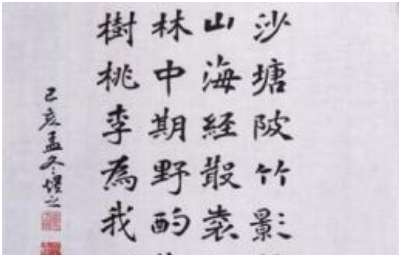 沙塘陂竹影
山海經散袠
林中期野酌
樹桃李為我
己亥孟冬